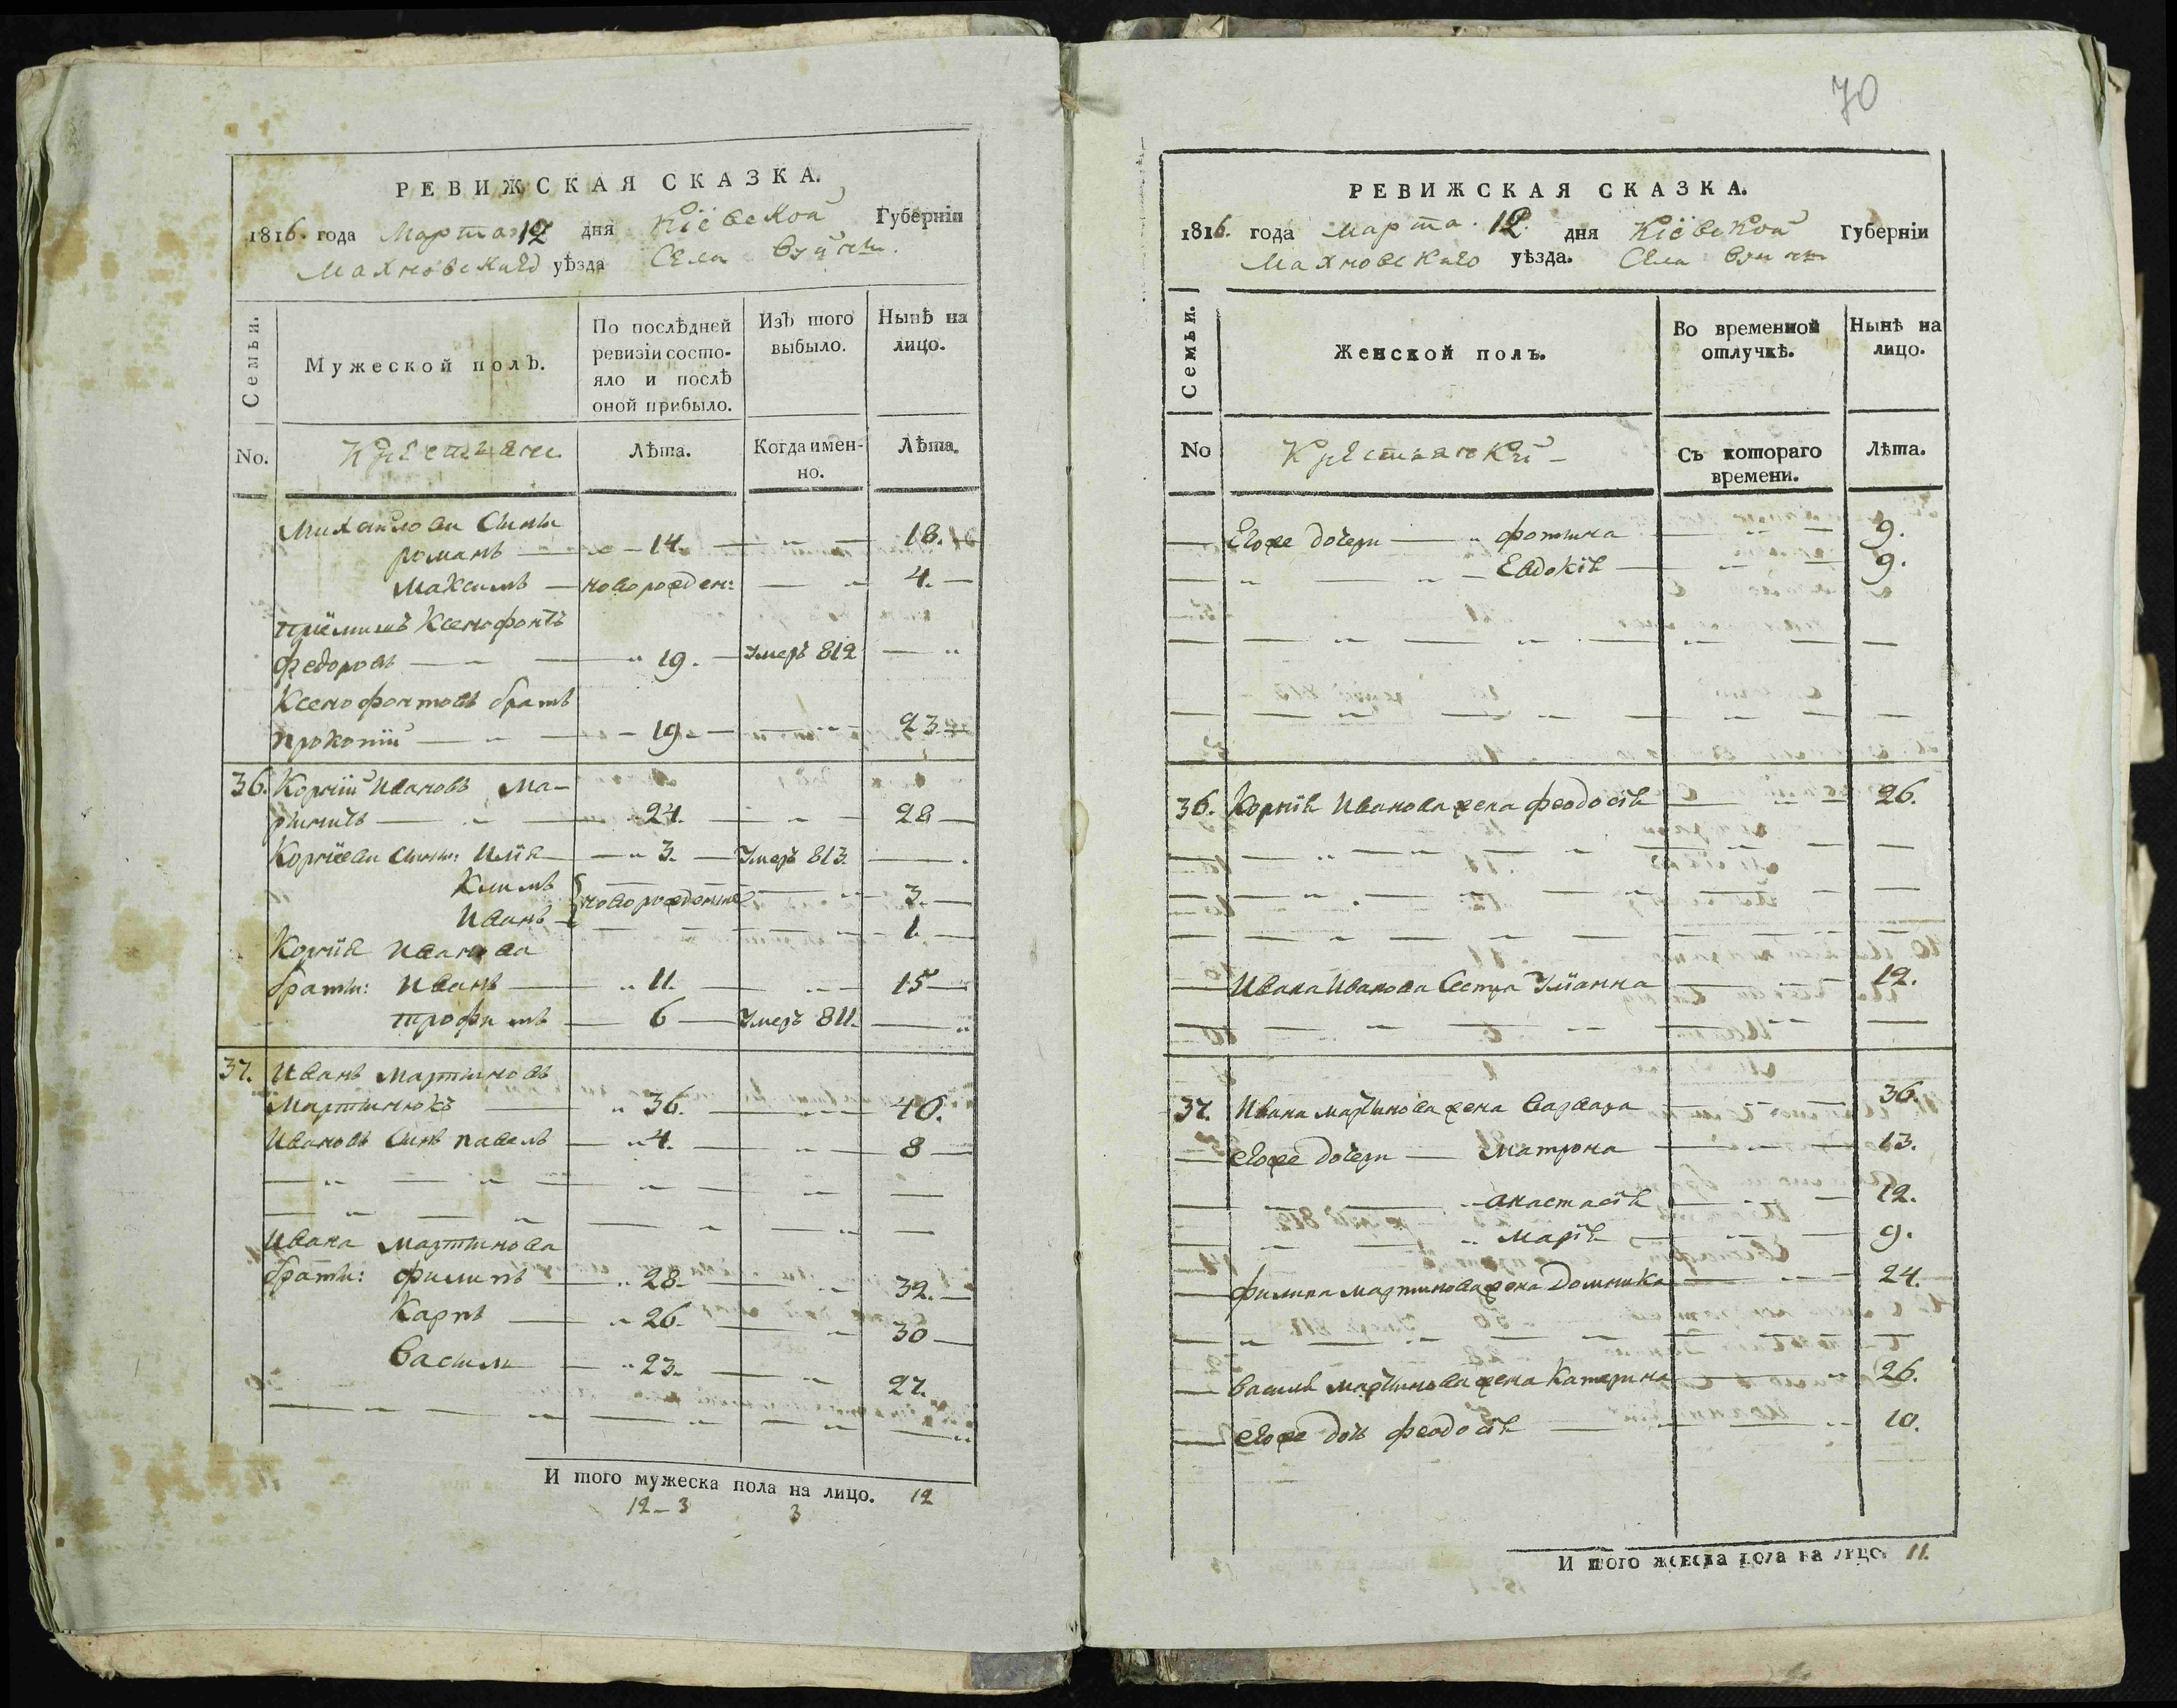 70
РЕВИЖСКАЯ СКАЗКА.
1816. года Марта 12 дня Кіевской Губерніи
Махновскаго уѣзда Села
Семьи. Мужеской полъ. По послѣдней ревизіи состояло и послѣ оной прибыло. Изъ того выбыло. Нынѣ на лицо.
No. Крестьяне Лѣта. Когда именно. Лѣта.
Михайловы Сыны
романъ — 14. — 18.
Максимъ — новорожден: — 4. —
пріёмышъ Ксенофонтъ
Федоровъ — 19. — Умеръ 812 —
Ксенофонтовъ братъ
прокопій — 19. — 23.
36. Корній Ивановъ Ма-
— 24. — 28 —
Корніевы Сыны: Илія — 3. — Умеръ 813. —
Климъ новорожденные — 3. —
Иванъ — 1. —
Корнія Иванова
братья: Иванъ — 11. — 15 —
трофимъ — 6 — Умеръ 811. —
37. Иванъ Мартиновъ
Мартинюкъ — 36. — 40.
Ивановъ Сынъ павелъ — 4. — 8 —
Ивана Мартинова
братья: филипъ — 28. — 32. —
Карпъ — 26. — 30 —
Василій — 23. — 27.
И того мужеска пола на лицо. 12
12 — 3 3
РЕВИЖСКАЯ СКАЗКА.
1816. года Марта 12. дня Кіевской Губерніи
Махновскаго уѣзда. Села
Семьи. Женской полъ. Во временной отлучкѣ. Нынѣ на лицо.
No Крестьянки Съ котораго времени. Лѣта.
Егоже дочери — фотина — 9.
Евдокія — 9.
36. Корнія Иванова жена феодосія — 26.
Ивана Иванова Сестра Уліанна — 12.
37. Ивана Мартинова жена Варвара — 36.
егоже дочери — Матрона — 13.
анастасія — 12.
Марія — 9.
филипа Мартинова жена Домника — 24.
Василія Мартинова жена Катерина — 26.
егоже дочь феодосія — 10.
И того женска пола на лицо. 11.